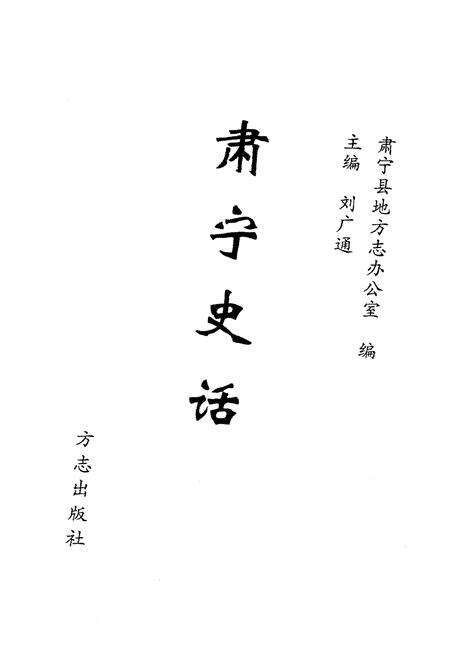 肃宁县地方志办公室 编
主编 刘广通
肃宁史话
方志出版社